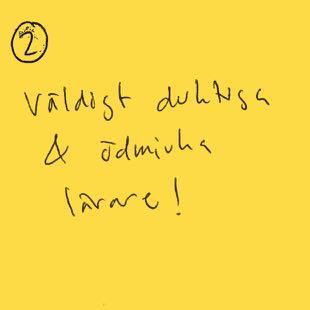 2
Väldigt duktiga
& ödmjuka
lärare!